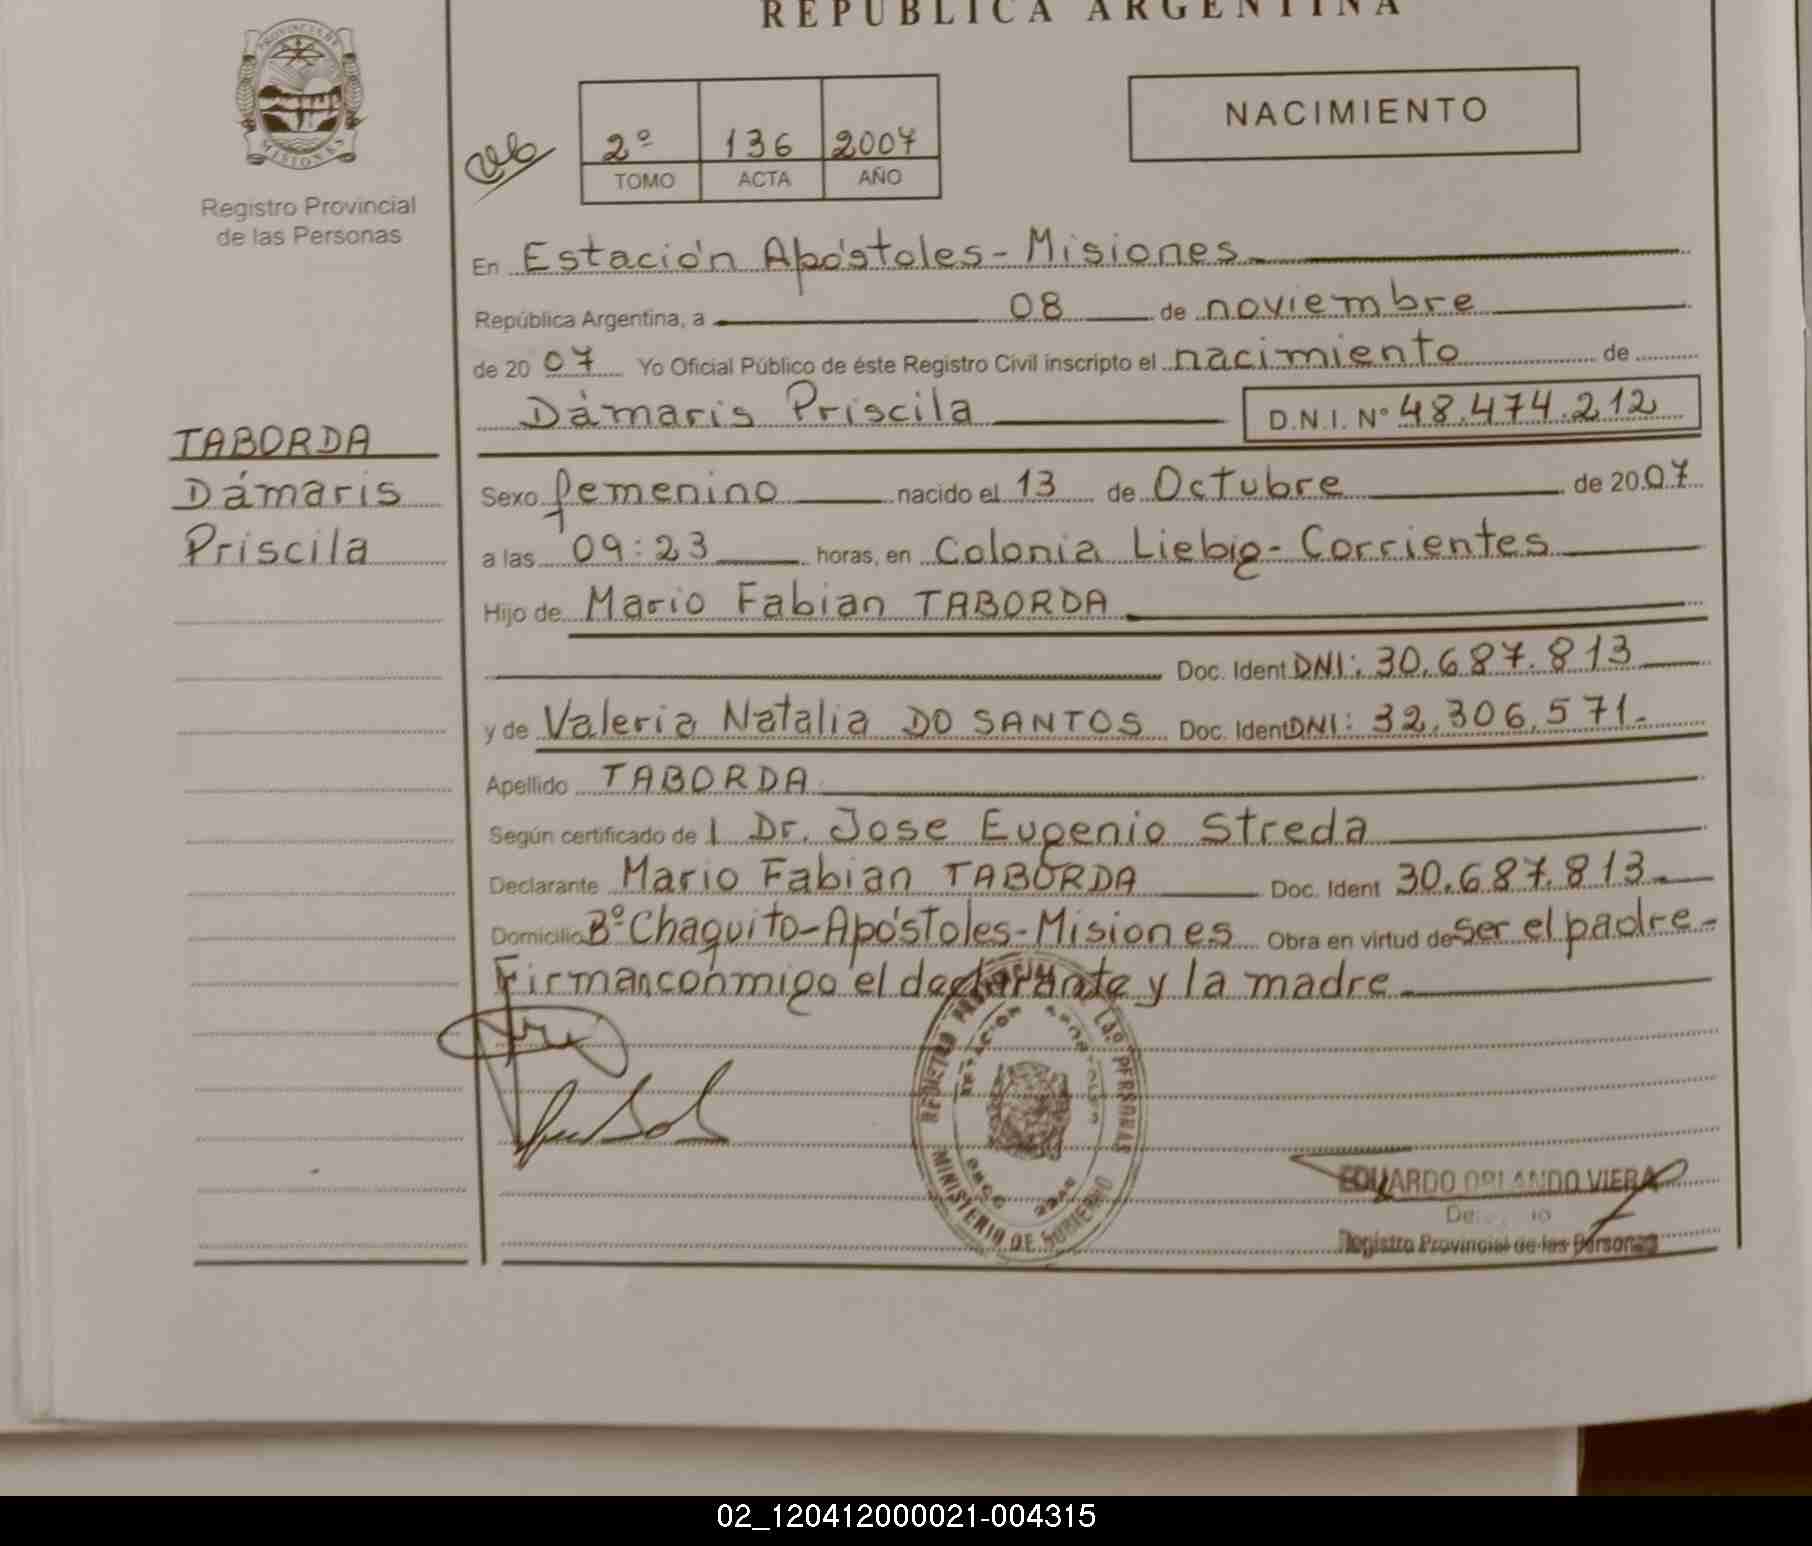 REPUBLICA ARGENTINA
PROVINCIA DE
MISIONES
Registro Provincial
de las Personas
2º 136 2007
TOMO ACTA AÑO
NACIMIENTO
En Estación Apóstoles - Misiones
República Argentina, a 08 de noviembre
de 2007 Yo Oficial Público de éste Registro Civil inscripto el nacimiento de
Dámaris Priscila D.N.I. Nº 48.474.212
TABORDA
Dámaris
Priscila
Sexo femenino nacido el 13 de Octubre de 2007
a las 09:23 horas, en Colonia Liebig - Corrientes
Hijo de Mario Fabian TABORDA
Doc. Ident DNI: 30.687.813
y de Valeria Natalia DO SANTOS Doc. Ident DNI: 32.306.571.-
Apellido TABORDA
Según certificado de l Dr. Jose Eugenio Streda
Declarante Mario Fabian TABORDA Doc. Ident 30.687.813.-
Domicilio Bº Chaquito - Apóstoles - Misiones Obra en virtud de ser el padre.-
Firman conmigo el declarante y la madre
MINISTERIO DE GOBIERNO
LAS PERSONAS
EDUARDO ORLANDO VIERA
Registro Provincial de las Personas
02_120412000021-004315